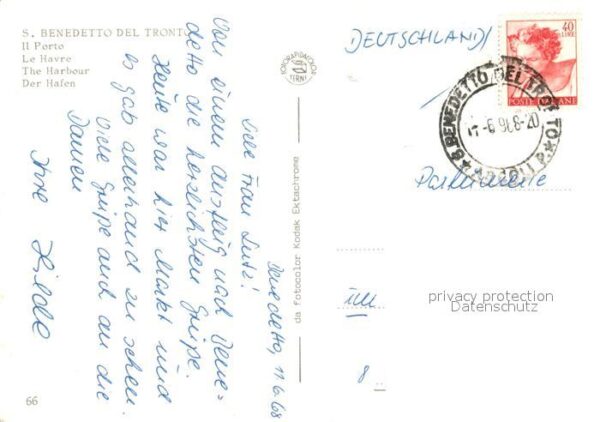 S. BENEDETTO DEL TRONTO
Il Porto
Le Havre
The Harbour
Der Hafen
Benedetto, 11.6.68
Frau Lutz!
Von einem Ausflug nach Bene-
detto die herzlichsten Grüße.
Heute war hier Markt und
es gab allerhand zu sehen.
Viele Grüße auch an die
Damen
Ihre Hilde
66
da fotocolor Kodak Ektachrome
FOTORAPIDACOLOR
TERNI
DEUTSCHLAND
40
LIRE
POSTE ITALIANE
S. BENEDETTO DEL TRONTO
Parkuren
8
privacy protection
Datenschutz